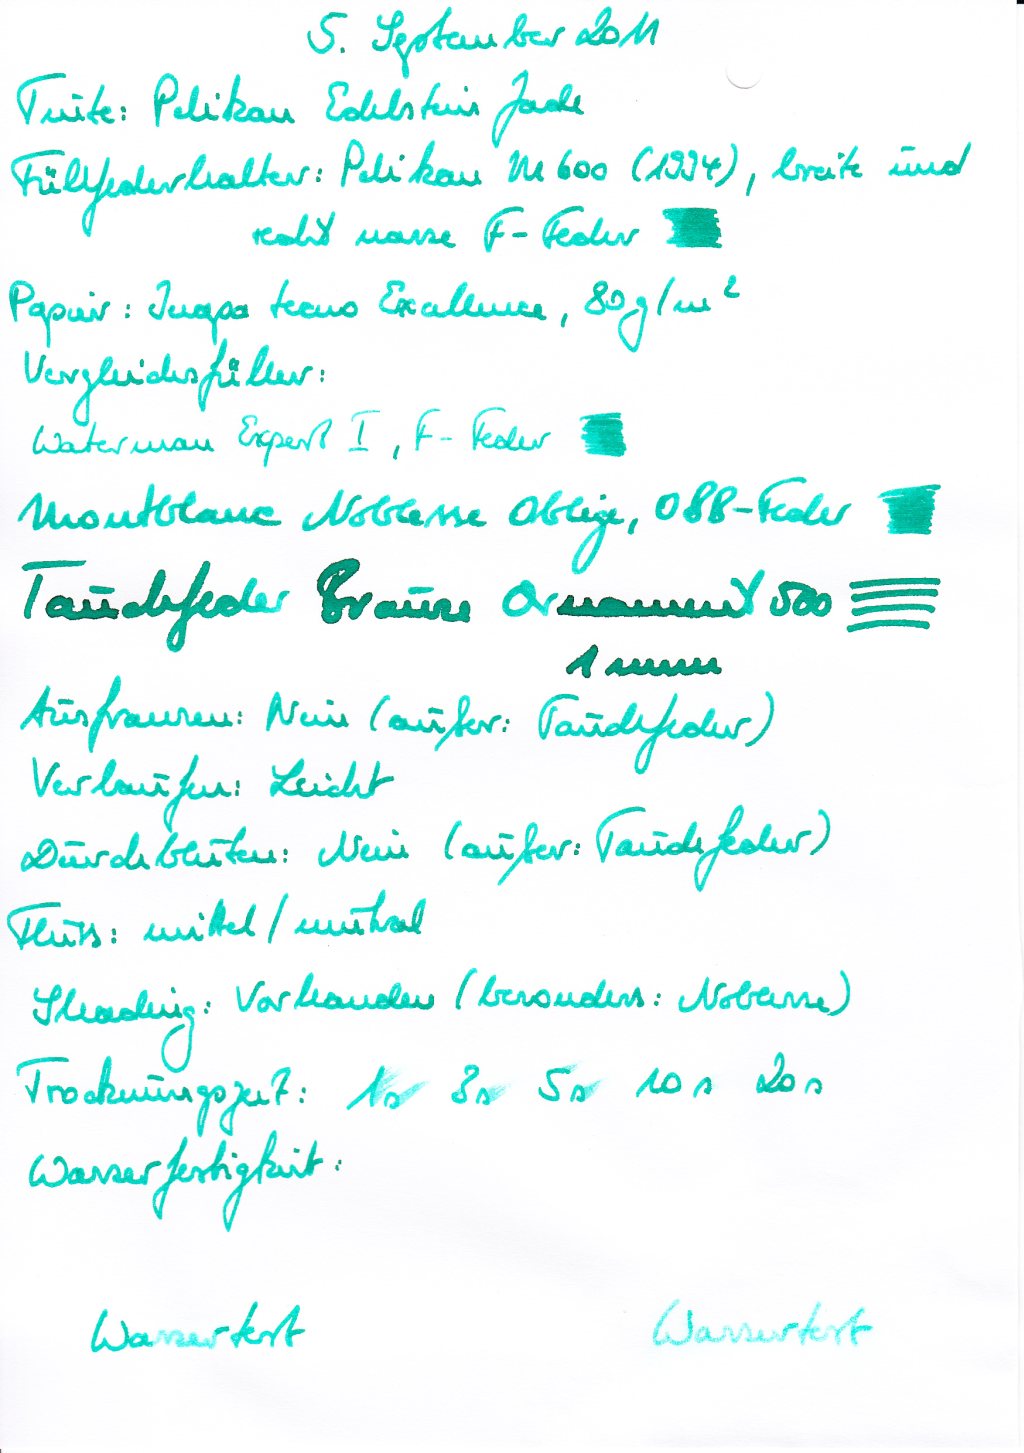 5. September 2011
Tinte: Pelikan Edelstein Jade
Füllfederhalter: Pelikan M600 (1994), breite und
recht nasse F-Feder
Papier: Inapa tecno Excellence, 80g/m²
Vergleichsfüller:
Waterman Expert I, F-Feder
Montblanc Noblesse Oblige, OBB-Feder
Tauchfeder Brause Ornament 500
1mm
Ausfransen: Nein (außer: Tauchfeder)
Verlaufen: Leicht
Durchbluten: Nein (außer: Tauchfeder)
Fluss: mittel/neutral
Shading: Vorhanden (besonders: Noblesse)
Trocknungszeit: 1s 3s 5s 10s 20s
Wasserfestigkeit:
Wassertest Wassertest